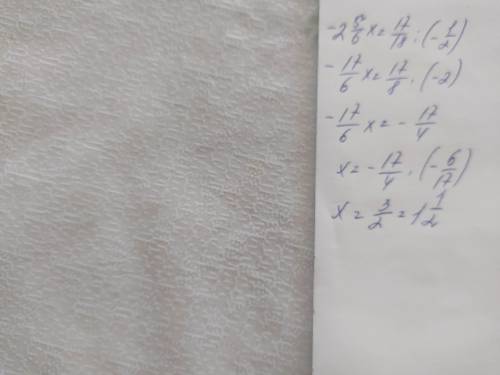 -2 5/6 x = 17/18 : (-1/2)
-17/6 x = 17/8 · (-2)
-17/6 x = - 17/4
x = - 17/4 · (- 6/17)
x = 3/2 = 1 1/2